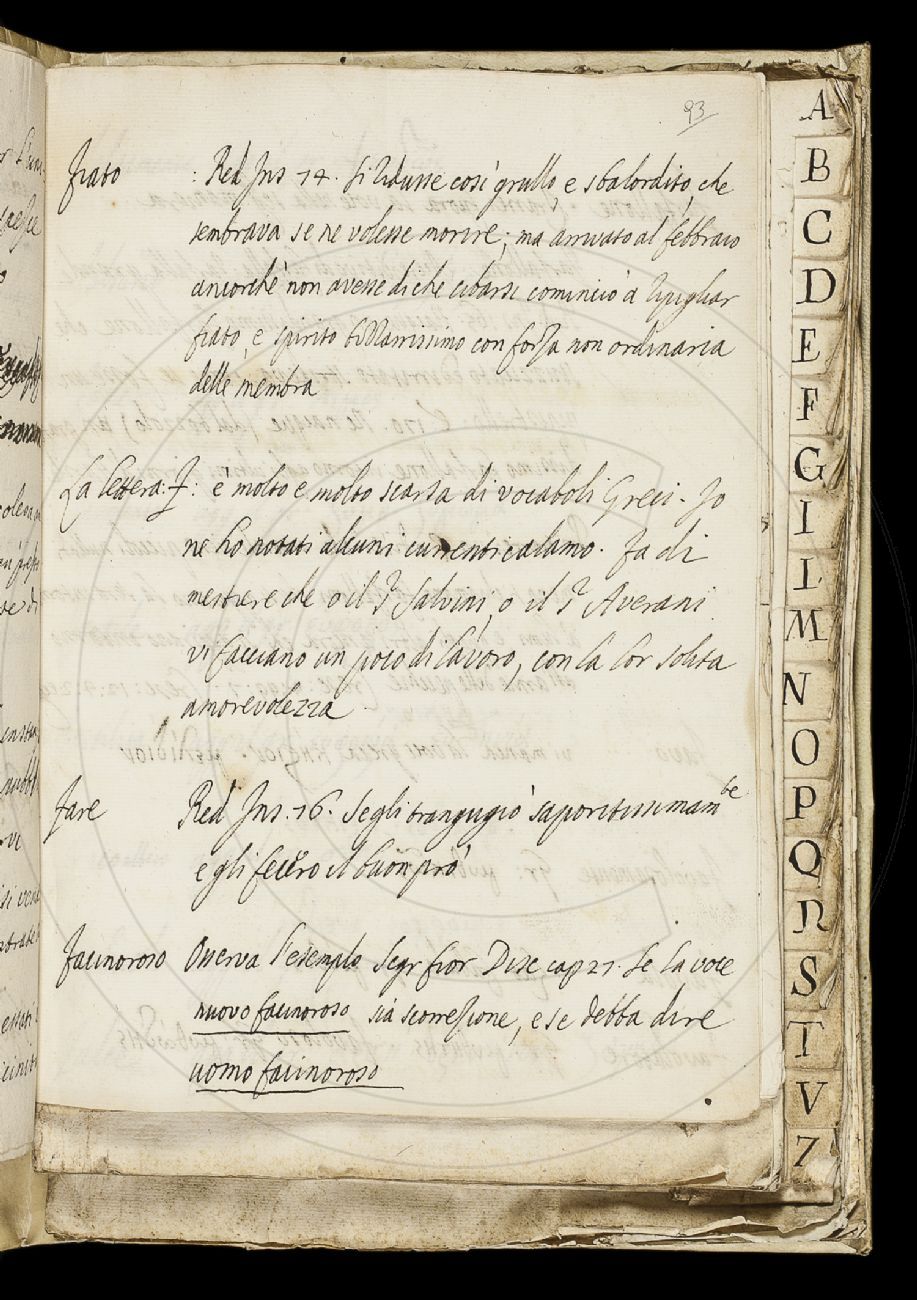 93
fiato : Red Ins 14. Si ridusse così grullo, e sbalordito, che
sembrava se ne volesse morire; ma arrivato al febbraio
ancorchè non avesse di che cibarsi cominciò à ripigliar
fiato, e spirito bizzarrissimo con forza non ordinaria
delle membra
La lettera: F: è molto e molto scarsa di vocaboli Greci. Io
ne ho notati alcuni currenti calamo. Fa di
mestiere che o il S.r Salvini, o il S.r Averani
vi facciano un poco di lavoro, con la lor solita
amorevolezza
fare Red Ins. 16. Se gli trangugiò saporitissimam.te
e gli fecero il buon prò
facinoroso Osserva l'esemplo Segr fior Disc cap 27. Se la voce
nuovo facinoroso sia scorrezione, e se debba dire
uomo facinoroso
A
B
C
D
E
F
G
I
L
M
N
O
P
Q
R
S
T
V
Z